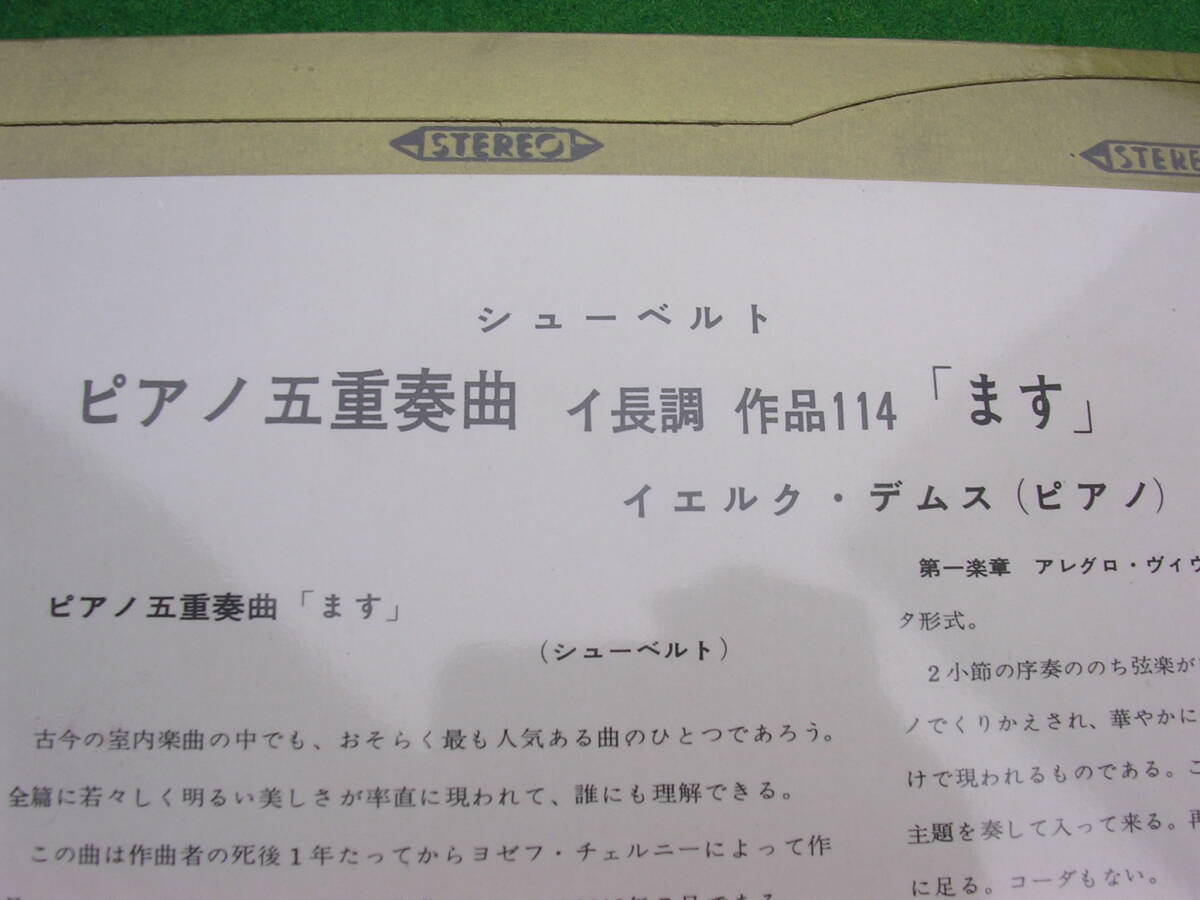 STEREO
STERE
シューベルト
ピアノ五重奏曲 イ長調 作品114 「ます」
イエルク・デムス (ピアノ)
ピアノ五重奏曲「ます」
(シューベルト)
古今の室内楽曲の中でも、おそらく最も人気ある曲のひとつであろう。
全篇に若々しく明るい美しさが率直に現われて、誰にも理解できる。
この曲は作曲者の死後1年たってからヨゼフ・チェルニーによって作
第一楽章 アレグロ・ヴィヴ
タ形式。
2小節の序奏ののち弦楽が
ノでくりかえされ、華やかに
けで現われるものである。こ
主題を奏して入って来る。再
に足る。コーダもない。